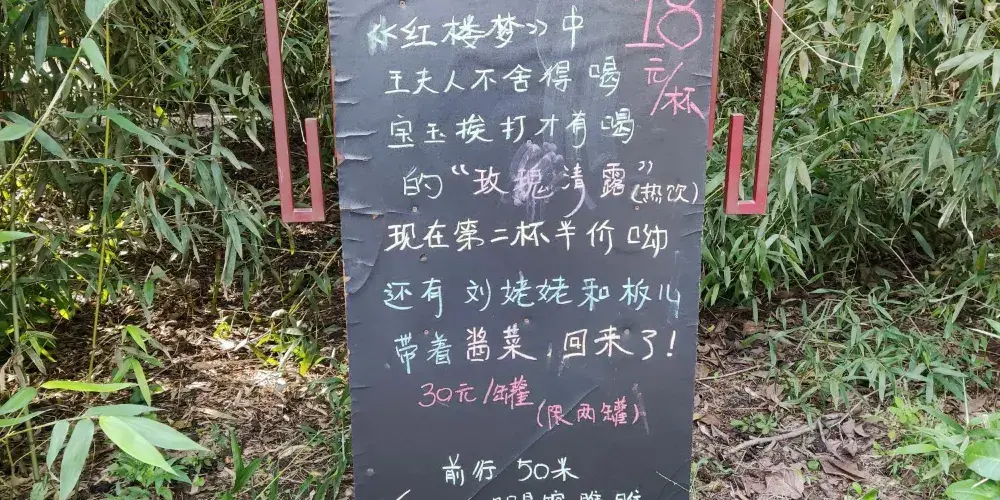 《红楼梦》中
王夫人不舍得喝
18元/杯
宝玉挨打才有喝
的“玫瑰清露”(热饮)
现在第二杯半价呦
还有刘姥姥和板儿
带着酱菜,回来了!
30元/罐(限两罐)
前行50米